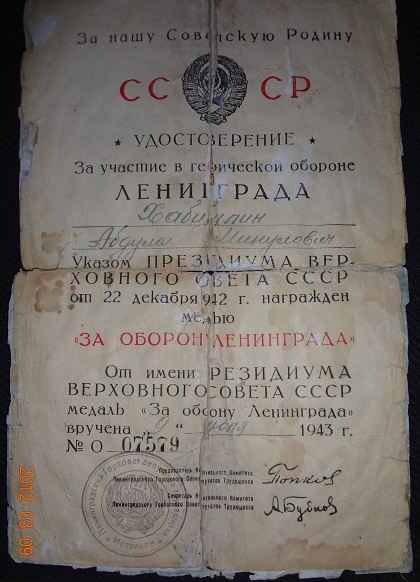 За нашу Советскую Родину
СС СР
★ УДОСТОВЕРЕНИЕ ★
За участие в героической обороне
ЛЕНИНГРАДА
Хабибуллин
Абдулла Минулович
Указом ПРЕЗИДИУМА ВЕР-
ХОВНОГО СОВЕТА СССР
от 22 декабря 1942 г. награжден
медалью
«ЗА ОБОРОНУ ЛЕНИНГРАДА»
От имени ПРЕЗИДИУМА
ВЕРХОВНОГО СОВЕТА СССР
медаль «За оборону Ленинграда»
вручена „9“ июля 1943 г.
№ О 07579
Председатель Исполнительного Комитета
Ленинградского Городского Совета депутатов Трудящихся
Попков
Секретарь Исполнительного Комитета
Ленинградского Городского Совета депутатов Трудящихся
А.Бубнов
2012 03 09